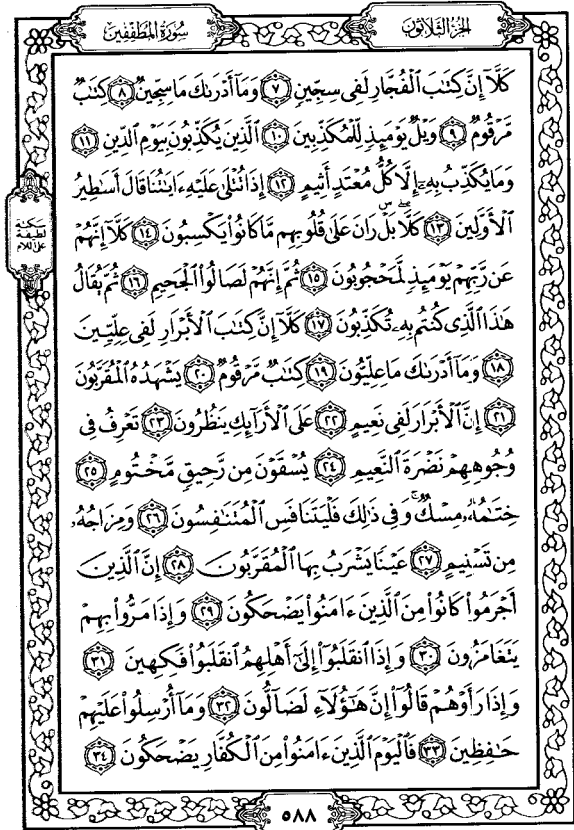 الجزء الثلاثون
سورة المطففين
كَلَّآ إِنَّ كِتَٰبَ ٱلْفُجَّارِ لَفِى سِجِّينٍ ٧ وَمَآ أَدْرَىٰكَ مَا سِجِّينٌ ٨ كِتَٰبٌ
مَّرْقُومٌ ٩ وَيْلٌ يَوْمَئِذٍ لِّلْمُكَذِّبِينَ ١٠ ٱلَّذِينَ يُكَذِّبُونَ بِيَوْمِ ٱلدِّينِ ١١
وَمَا يُكَذِّبُ بِهِۦٓ إِلَّا كُلُّ مُعْتَدٍ أَثِيمٍ ١٢ إِذَا تُتْلَىٰ عَلَيْهِ ءَايَٰتُنَا قَالَ أَسَٰطِيرُ
ٱلْأَوَّلِينَ ١٣ كَلَّا بَلْ ۜ رَانَ عَلَىٰ قُلُوبِهِم مَّا كَانُوا۟ يَكْسِبُونَ ١٤ كَلَّآ إِنَّهُمْ
عَن رَّبِّهِمْ يَوْمَئِذٍ لَّمَحْجُوبُونَ ١٥ ثُمَّ إِنَّهُمْ لَصَالُوا۟ ٱلْجَحِيمِ ١٦ ثُمَّ يُقَالُ
هَٰذَا ٱلَّذِى كُنتُم بِهِۦ تُكَذِّبُونَ ١٧ كَلَّآ إِنَّ كِتَٰبَ ٱلْأَبْرَارِ لَفِى عِلِّيِّينَ
١٨ وَمَآ أَدْرَىٰكَ مَا عِلِّيُّونَ ١٩ كِتَٰبٌ مَّرْقُومٌ ٢٠ يَشْهَدُهُ ٱلْمُقَرَّبُونَ
٢١ إِنَّ ٱلْأَبْرَارَ لَفِى نَعِيمٍ ٢٢ عَلَى ٱلْأَرَآئِكِ يَنظُرُونَ ٢٣ تَعْرِفُ فِى
وُجُوهِهِمْ نَضْرَةَ ٱلنَّعِيمِ ٢٤ يُسْقَوْنَ مِن رَّحِيقٍ مَّخْتُومٍ ٢٥
خِتَٰمُهُۥ مِسْكٌ ۚ وَفِى ذَٰلِكَ فَلْيَتَنَافَسِ ٱلْمُتَنَٰفِسُونَ ٢٦ وَمِزَاجُهُۥ
مِن تَسْنِيمٍ ٢٧ عَيْنًا يَشْرَبُ بِهَا ٱلْمُقَرَّبُونَ ٢٨ إِنَّ ٱلَّذِينَ
أَجْرَمُوا۟ كَانُوا۟ مِنَ ٱلَّذِينَ ءَامَنُوا۟ يَضْحَكُونَ ٢٩ وَإِذَا مَرُّوا۟ بِهِمْ
يَتَغَامَزُونَ ٣٠ وَإِذَا ٱنقَلَبُوٓا۟ إِلَىٰٓ أَهْلِهِمُ ٱنقَلَبُوا۟ فَكِهِينَ ٣١
وَإِذَا رَأَوْهُمْ قَالُوٓا۟ إِنَّ هَٰٓؤُلَآءِ لَضَآلُّونَ ٣٢ وَمَآ أُرْسِلُوا۟ عَلَيْهِمْ
حَٰفِظِينَ ٣٣ فَٱلْيَوْمَ ٱلَّذِينَ ءَامَنُوا۟ مِنَ ٱلْكُفَّارِ يَضْحَكُونَ ٣٤
سكتة
لطيفة
على اللام
٥٨٨